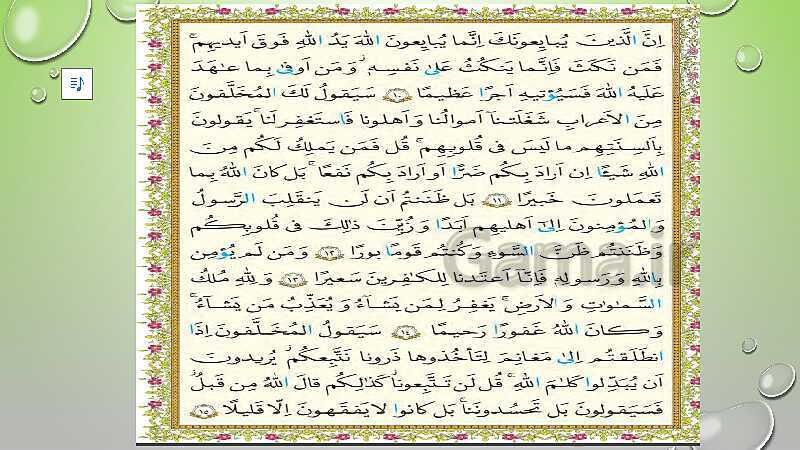 اِنَّ الَّذينَ يُبايِعونَكَ اِنَّما يُبايِعونَ اللّٰهَ يَدُ اللّٰهِ فَوقَ اَيديهِم ۚ
فَمَن نَكَثَ فَاِنَّما يَنكُثُ عَلىٰ نَفسِهٖ ۖ وَ مَن اَوفىٰ بِما عٰهَدَ
عَلَيهُ اللّٰهَ فَسَيُؤتيهِ اَجرًا عَظيمًا ﴿١٠﴾ سَيَقولُ لَكَ المُخَلَّفونَ
مِنَ الاَعرابِ شَغَلَتنا اَموالُنا وَ اَهلونا فَاستَغفِر لَنا ۚ يَقولونَ
بِاَلسِنَتِهِم ما لَيسَ فى قُلوبِهِم ۚ قُل فَمَن يَملِكُ لَكُم مِنَ
اللّٰهِ شَيئًا اِن اَرادَ بِكُم ضَرًّا اَو اَرادَ بِكُم نَفعًا ۚ بَل كانَ اللّٰهُ بِما
تَعمَلونَ خَبيرًا ﴿١١﴾ بَل ظَنَنتُم اَن لَن يَنقَلِبَ الرَّسولُ
وَ المُؤمِنونَ اِلىٰٓ اَهليهِم اَبَدًا وَ زُيِّنَ ذٰلِكَ فى قُلوبِكُم
وَ ظَنَنتُم ظَنَّ السَّوءِ وَ كُنتُم قَومًا بورًا ﴿١٢﴾ وَ مَن لَم يُؤمِن
بِاللّٰهِ وَ رَسولِهٖ فَاِنّا اَعتَدنا لِلكٰفِرينَ سَعيرًا ﴿١٣﴾ وَ لِلّٰهِ مُلكُ
السَّمٰوٰتِ وَ الاَرضِ ۚ يَغفِرُ لِمَن يَشآءُ وَ يُعَذِّبُ مَن يَشآءُ ۚ
وَ كانَ اللّٰهُ غَفورًا رَحيمًا ﴿١٤﴾ سَيَقولُ المُخَلَّفونَ اِذَا
انطَلَقتُم اِلىٰ مَغانِمَ لِتَأخُذوها ذَرونا نَتَّبِعكُم ۖ يُريدونَ
اَن يُبَدِّلوا كَلٰمَ اللّٰهِ ۚ قُل لَن تَتَّبِعونا كَذٰلِكُم قالَ اللّٰهُ مِن قَبلُ ۖ
فَسَيَقولونَ بَل تَحسُدونَنا ۚ بَل كانوا لا يَفقَهونَ اِلّا قَليلًا ﴿١٥﴾
Gama.ir